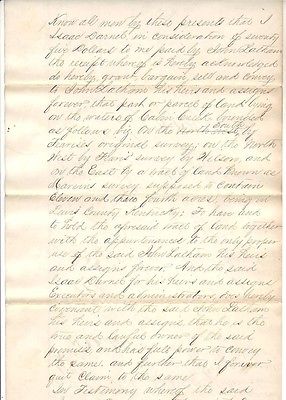 Know all men by these presents that I
Isaac Darnel in consideration of seventy
five Dollars to me paid by John Latham
the receipt whereof is hereby acknowledged
do hereby grant bargain, sell and convey
to John Latham his heirs and assigns
forever that part or parcel of land lying
on the waters of Cabin Creek bounded
as follows by. On the South by
original survey; on the North
West by survey by Wilson, and
on the East by a tract of land known as
Marions survey supposed to contain
Eleven and three fourth acres, being in
Lewis County Kentucky; To have and
to Hold the aforesaid tract of land together
with the appurtenances to the only proper
use of the said John Latham his heirs
and assigns forever. And the said
Isaac Darnel for his heirs and assigns
Executors and administrators, does hereby
Covenant with the said John Latham
his heirs and assigns, that he is the
true and lawful owner of the said
premises, and has full power to convey
the same. and further that I forever
quit Claim to the same
In Testimony whereof the said